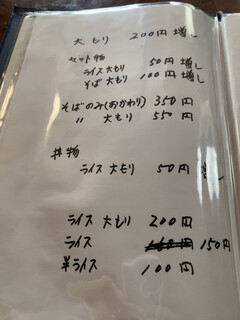 大もり 200円増し
セット物
ライス大もり 50円増し
そば大もり 100円増し
そばのみ(おかわり) 350円
〃 大もり 550円
丼物
ライス大もり 50円増し
ライス大もり 200円
ライス 160円 150円
半ライス 100円